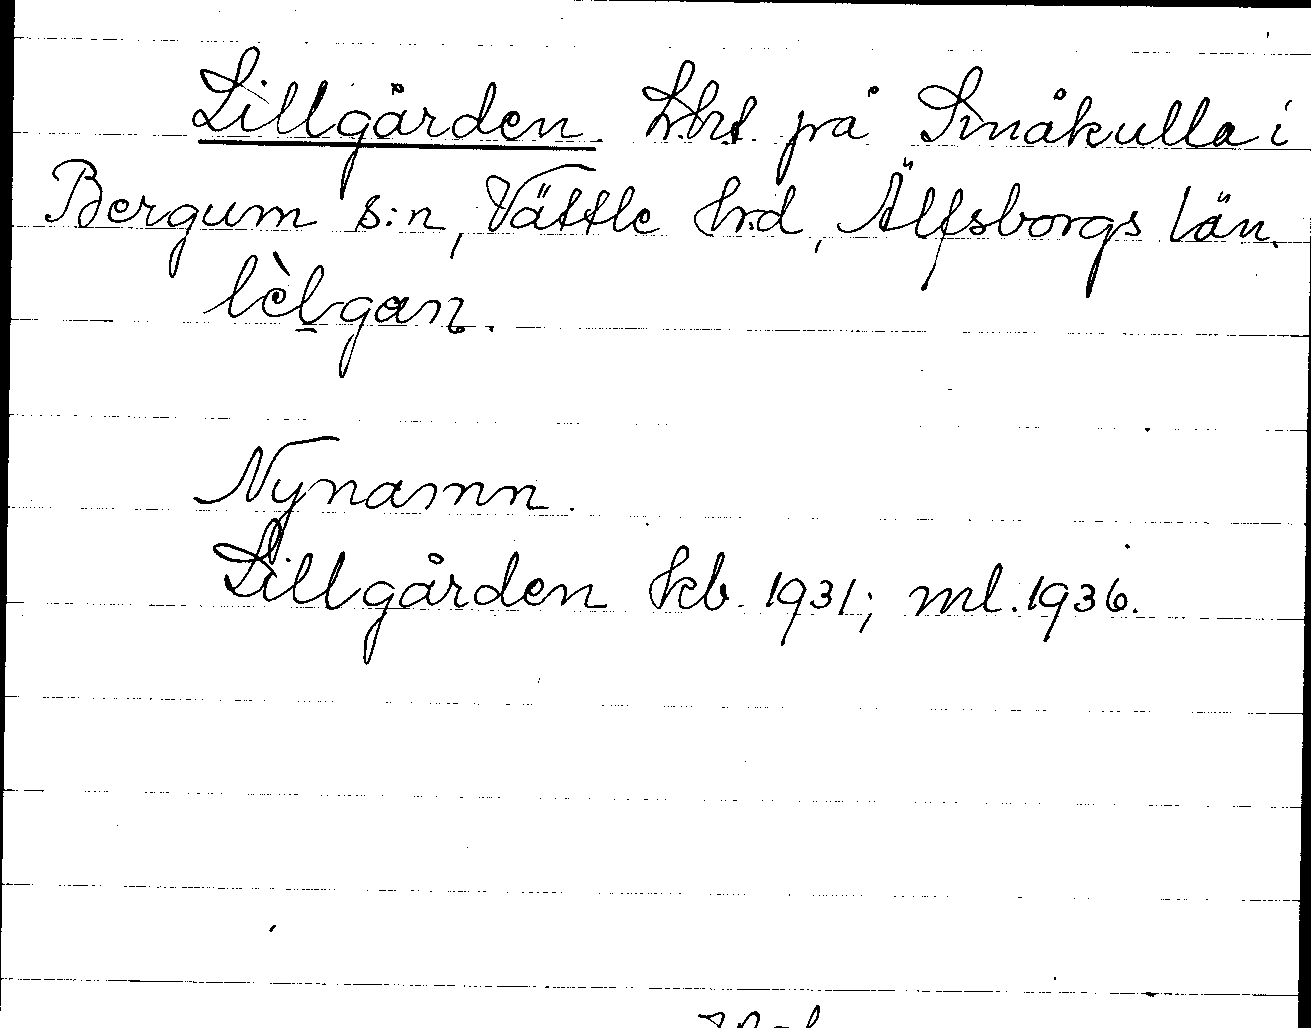 Lillgården. Lht. på Småkulla i
Bergum s:n, Vättle hrd, Älfsborgs län.
lèlgan.
Nynamn.
Lillgården kb. 1931; ml. 1936.